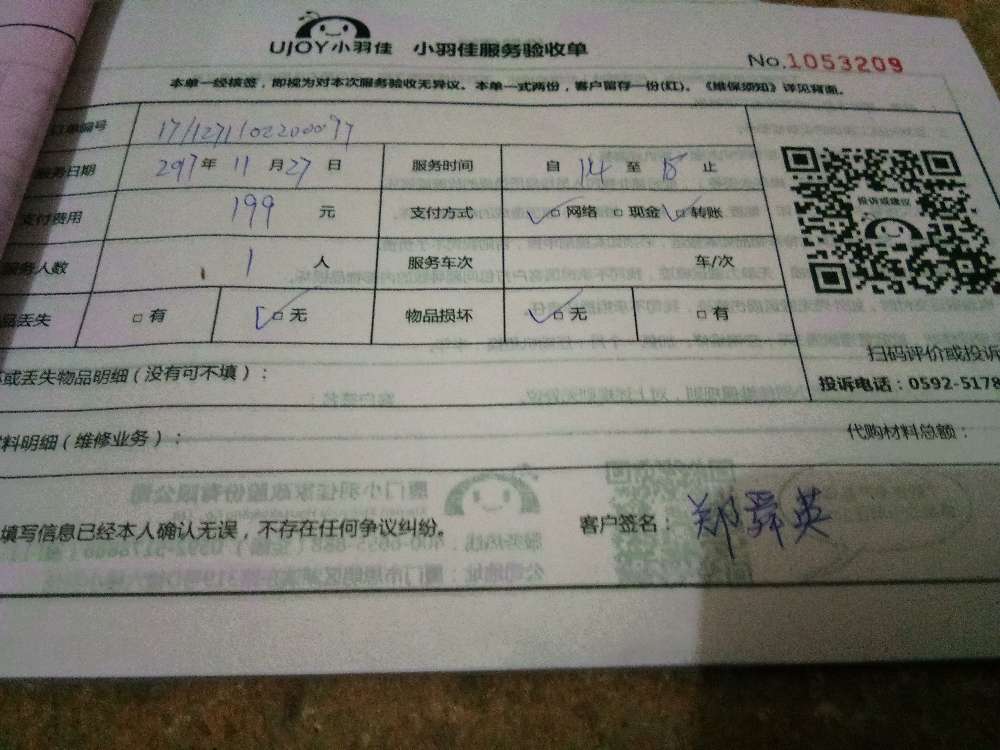 UJOY小羽佳 小羽佳服务验收单
No.1053209
本单一经核签，即视为对本次服务验收无异议。本单一式两份，客户留存一份(红)。《维保须知》详见背面。
订单编号
服务日期 年 11 月 27 日 服务时间 自 14 至 18 止
支付费用 199 元 支付方式 网络 现金 转账
服务人数 1 人 服务车次 车/次
品丢失 有 无 物品损坏 无 有
投诉或建议
扫码评价或投诉
投诉电话：0592-5178
坏或丢失物品明细（没有可不填）：
料明细（维修业务）： 代购材料总额：
填写信息已经本人确认无误，不存在任何争议纠纷。 客户签名：郑舜英